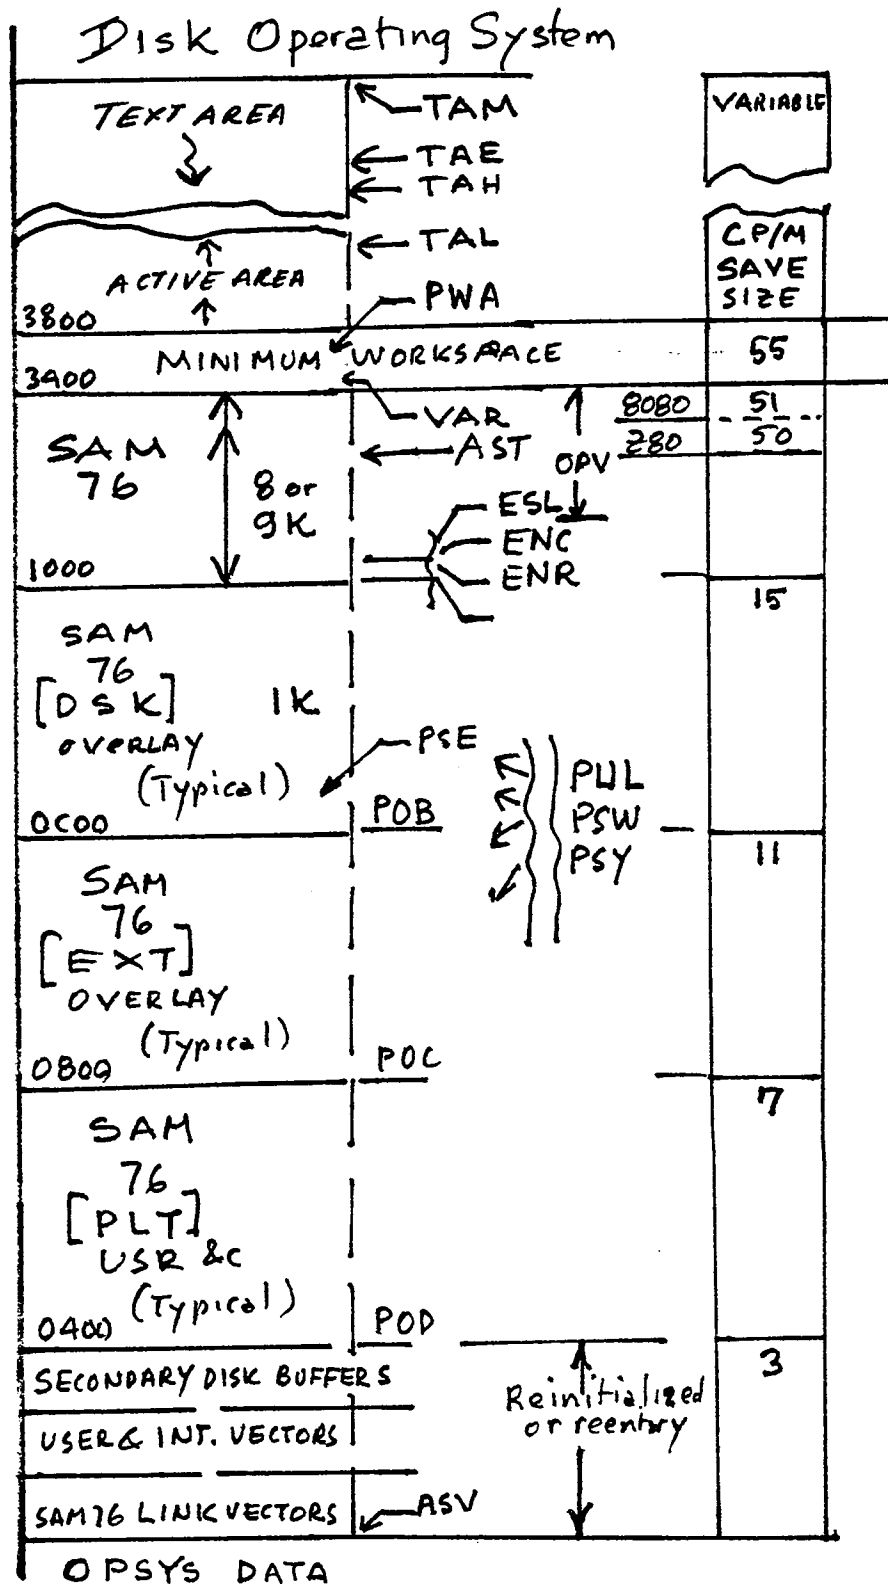 Disk Operating System
TEXT AREA
TAM
TAE
TAH
TAL
VARIABLE
CP/M
SAVE
SIZE
ACTIVE AREA
PWA
3800
MINIMUM WORKSPACE
55
3400
VAR
8080
51
SAM
76
8 or
9K
AST
OPV
Z80
50
ESL
ENC
ENR
1000
15
SAM
76
[DSK]
1K
OVERLAY
(Typical)
PSE
0C00
POB
PUL
PSW
PSY
11
SAM
76
[EXT]
OVERLAY
(Typical)
0800
POC
7
SAM
76
[PLT]
USR &c
(Typical)
0400
POD
3
SECONDARY DISK BUFFERS
Reinitialized
or reentry
USER & INT. VECTORS
SAM76 LINK VECTORS
ASV
OPSYS DATA